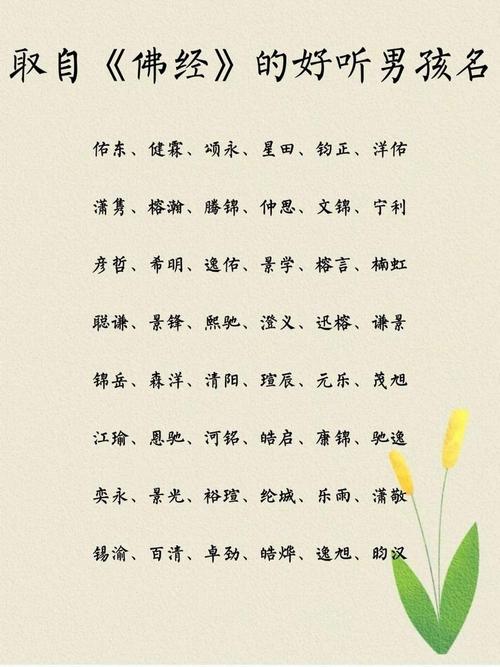 取自《佛经》的好听男孩名
佑东、健霖、颂永、星田、钧正、洋佑
潇隽、榕瀚、腾锦、仲思、文锦、宁利
彦哲、希明、逸佑、景学、榕言、楠虹
聪谦、景锋、熙驰、澄义、迅榕、谦景
锦岳、森洋、清阳、瑄辰、元乐、茂旭
江瑜、恩驰、河铭、皓启、康锦、驰逸
奕永、景光、裕瑄、纶城、乐雨、潇敬
锡渝、百清、卓劲、皓烨、逸旭、昀汉